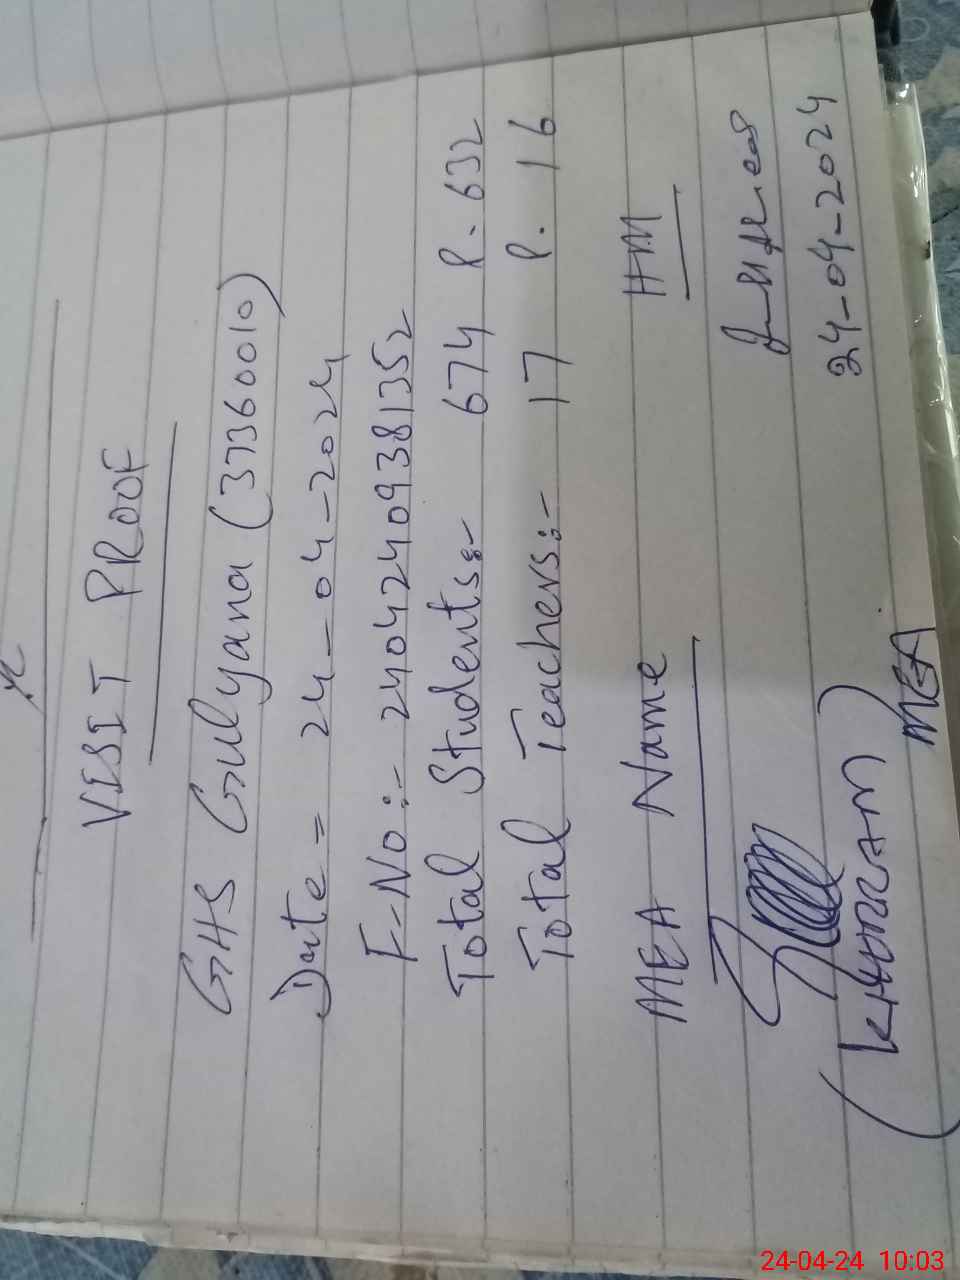 VISIT PROOF
GHS Gulyana (37360010)
Date = 24-04-2024
F-No:- 24042409381352
Total Students:- 674 P. 632
Total Teachers:- 17 P. 16
MEA Name HM
24-04-2024
(KHURRAM)
MEA
24-04-24 10:03